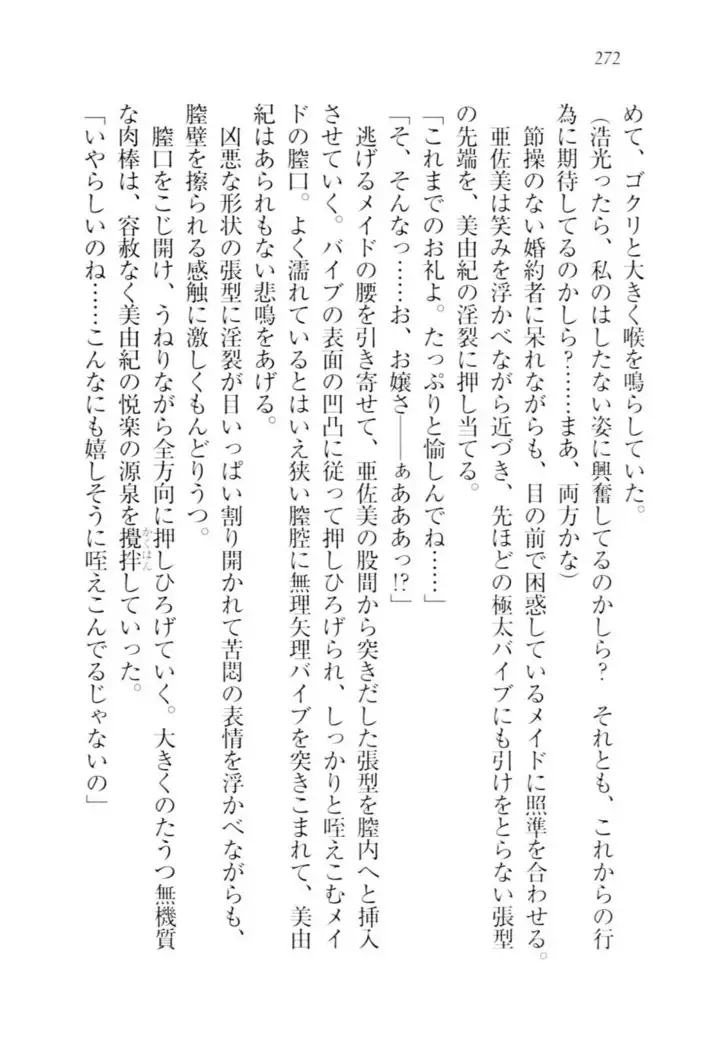 272
めて、ゴクリと大きく喉を鳴らしていた。
（浩光ったら、私のはしたない姿に興奮してるのかしら？　それとも、これからの行
為に期待してるのかしら？……まあ、両方かな）
節操のない婚約者に呆れながらも、目の前で困惑しているメイドに照準を合わせる。
亜佐美は笑みを浮かべながら近づき、先ほどの極太バイブにも引けをとらない張型
の先端を、美由紀の淫裂に押し当てる。
「これまでのお礼よ。たっぷりと愉しんでね……」
「そ、そんなっ……お、お嬢さ――ぁあああっ!?」
逃げるメイドの腰を引き寄せて、亜佐美の股間から突きだした張型を膣内へと挿入
させていく。バイブの表面の凹凸に従って押しひろげられ、しっかりと咥えこむメイ
ドの膣口。よく濡れているとはいえ狭い膣腔に無理矢理バイブを突きこまれて、美由
紀はあられもない悲鳴をあげる。
凶悪な形状の張型に淫裂が目いっぱい割り開かれて苦悶の表情を浮かべながらも、
膣壁を擦られる感触に激しくもんどりうつ。
膣口をこじ開け、うねりながら全方向に押しひろげていく。大きくのたうつ無機質
な肉棒は、容赦なく美由紀の悦楽の源泉を攪拌していった。
かくはん
「いやらしいのね……こんなにも嬉しそうに咥えこんでるじゃないの」